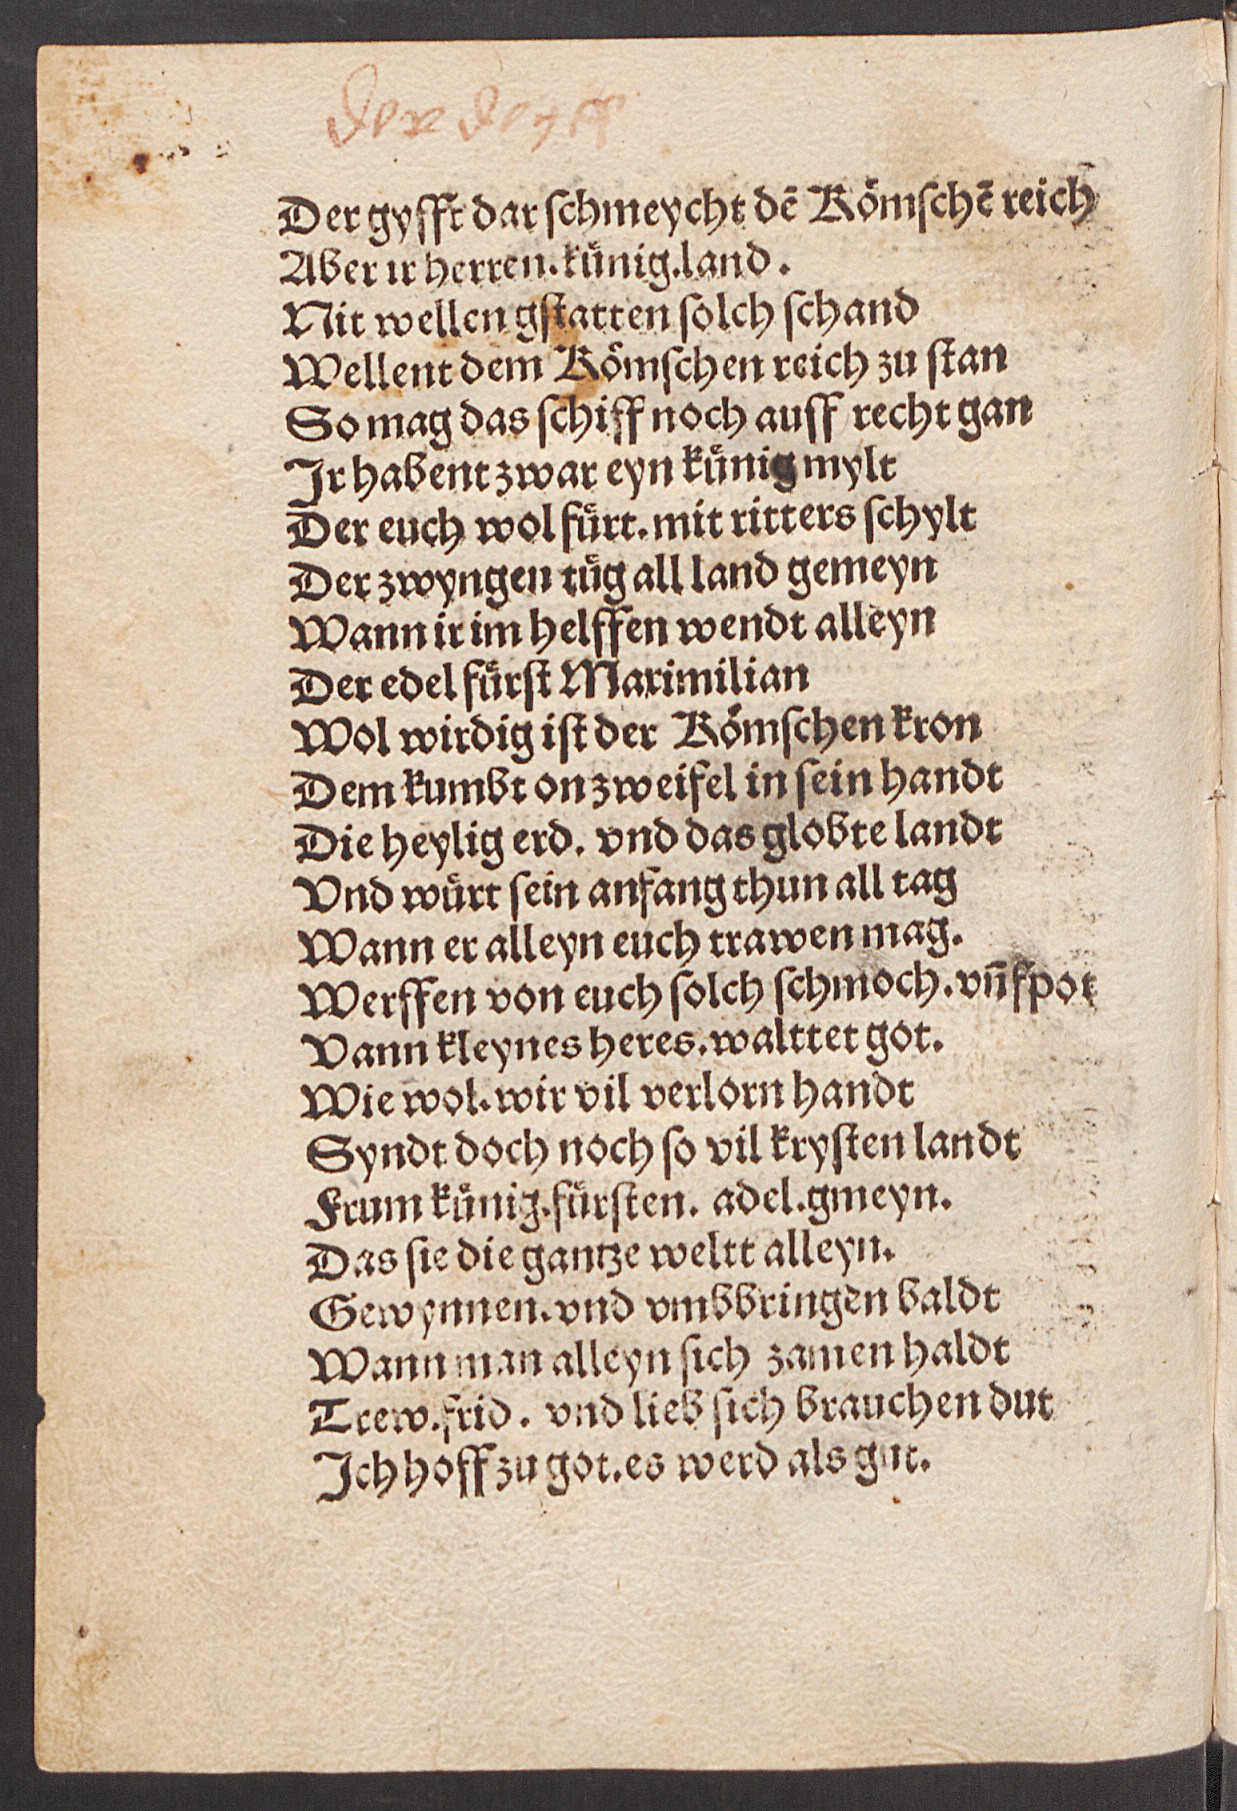 Der gyfft dar schmeycht dē Römschē reich
Aber ir herren. künig. land.
Nit wellen gstatten solch schand
Wellent dem Römschen reich zu stan
So mag das schiff noch auff recht gan
Ir habent zwar eyn künig mylt
Der euch wol fürt. mit ritters schylt
Der zwyngen tüg all land gemeyn
Wann ir im helffen wendt alleyn
Der edel fürst Maximilian
Wol wirdig ist der Römschen kron
Dem kumbt on zweifel in sein handt
Die heylig erd. vnd das globte landt
Vnd würt sein anfang thun all tag
Wann er alleyn euch trawen mag.
Werffen von euch solch schmoch. vñ spot
Vann kleynes heres. walttet got.
Wie wol. wir vil verlorn handt
Syndt doch noch so vil krysten landt
Frum künig. fürsten. adel. gmeyn.
Das sie die gantze weltt alleyn.
Gewynnen. vnd vmbbringen baldt
Wann man alleyn sich zamen haldt
Trew. frid. vnd lieb sich brauchen dut
Ich hoff zu got. es werd als gut.